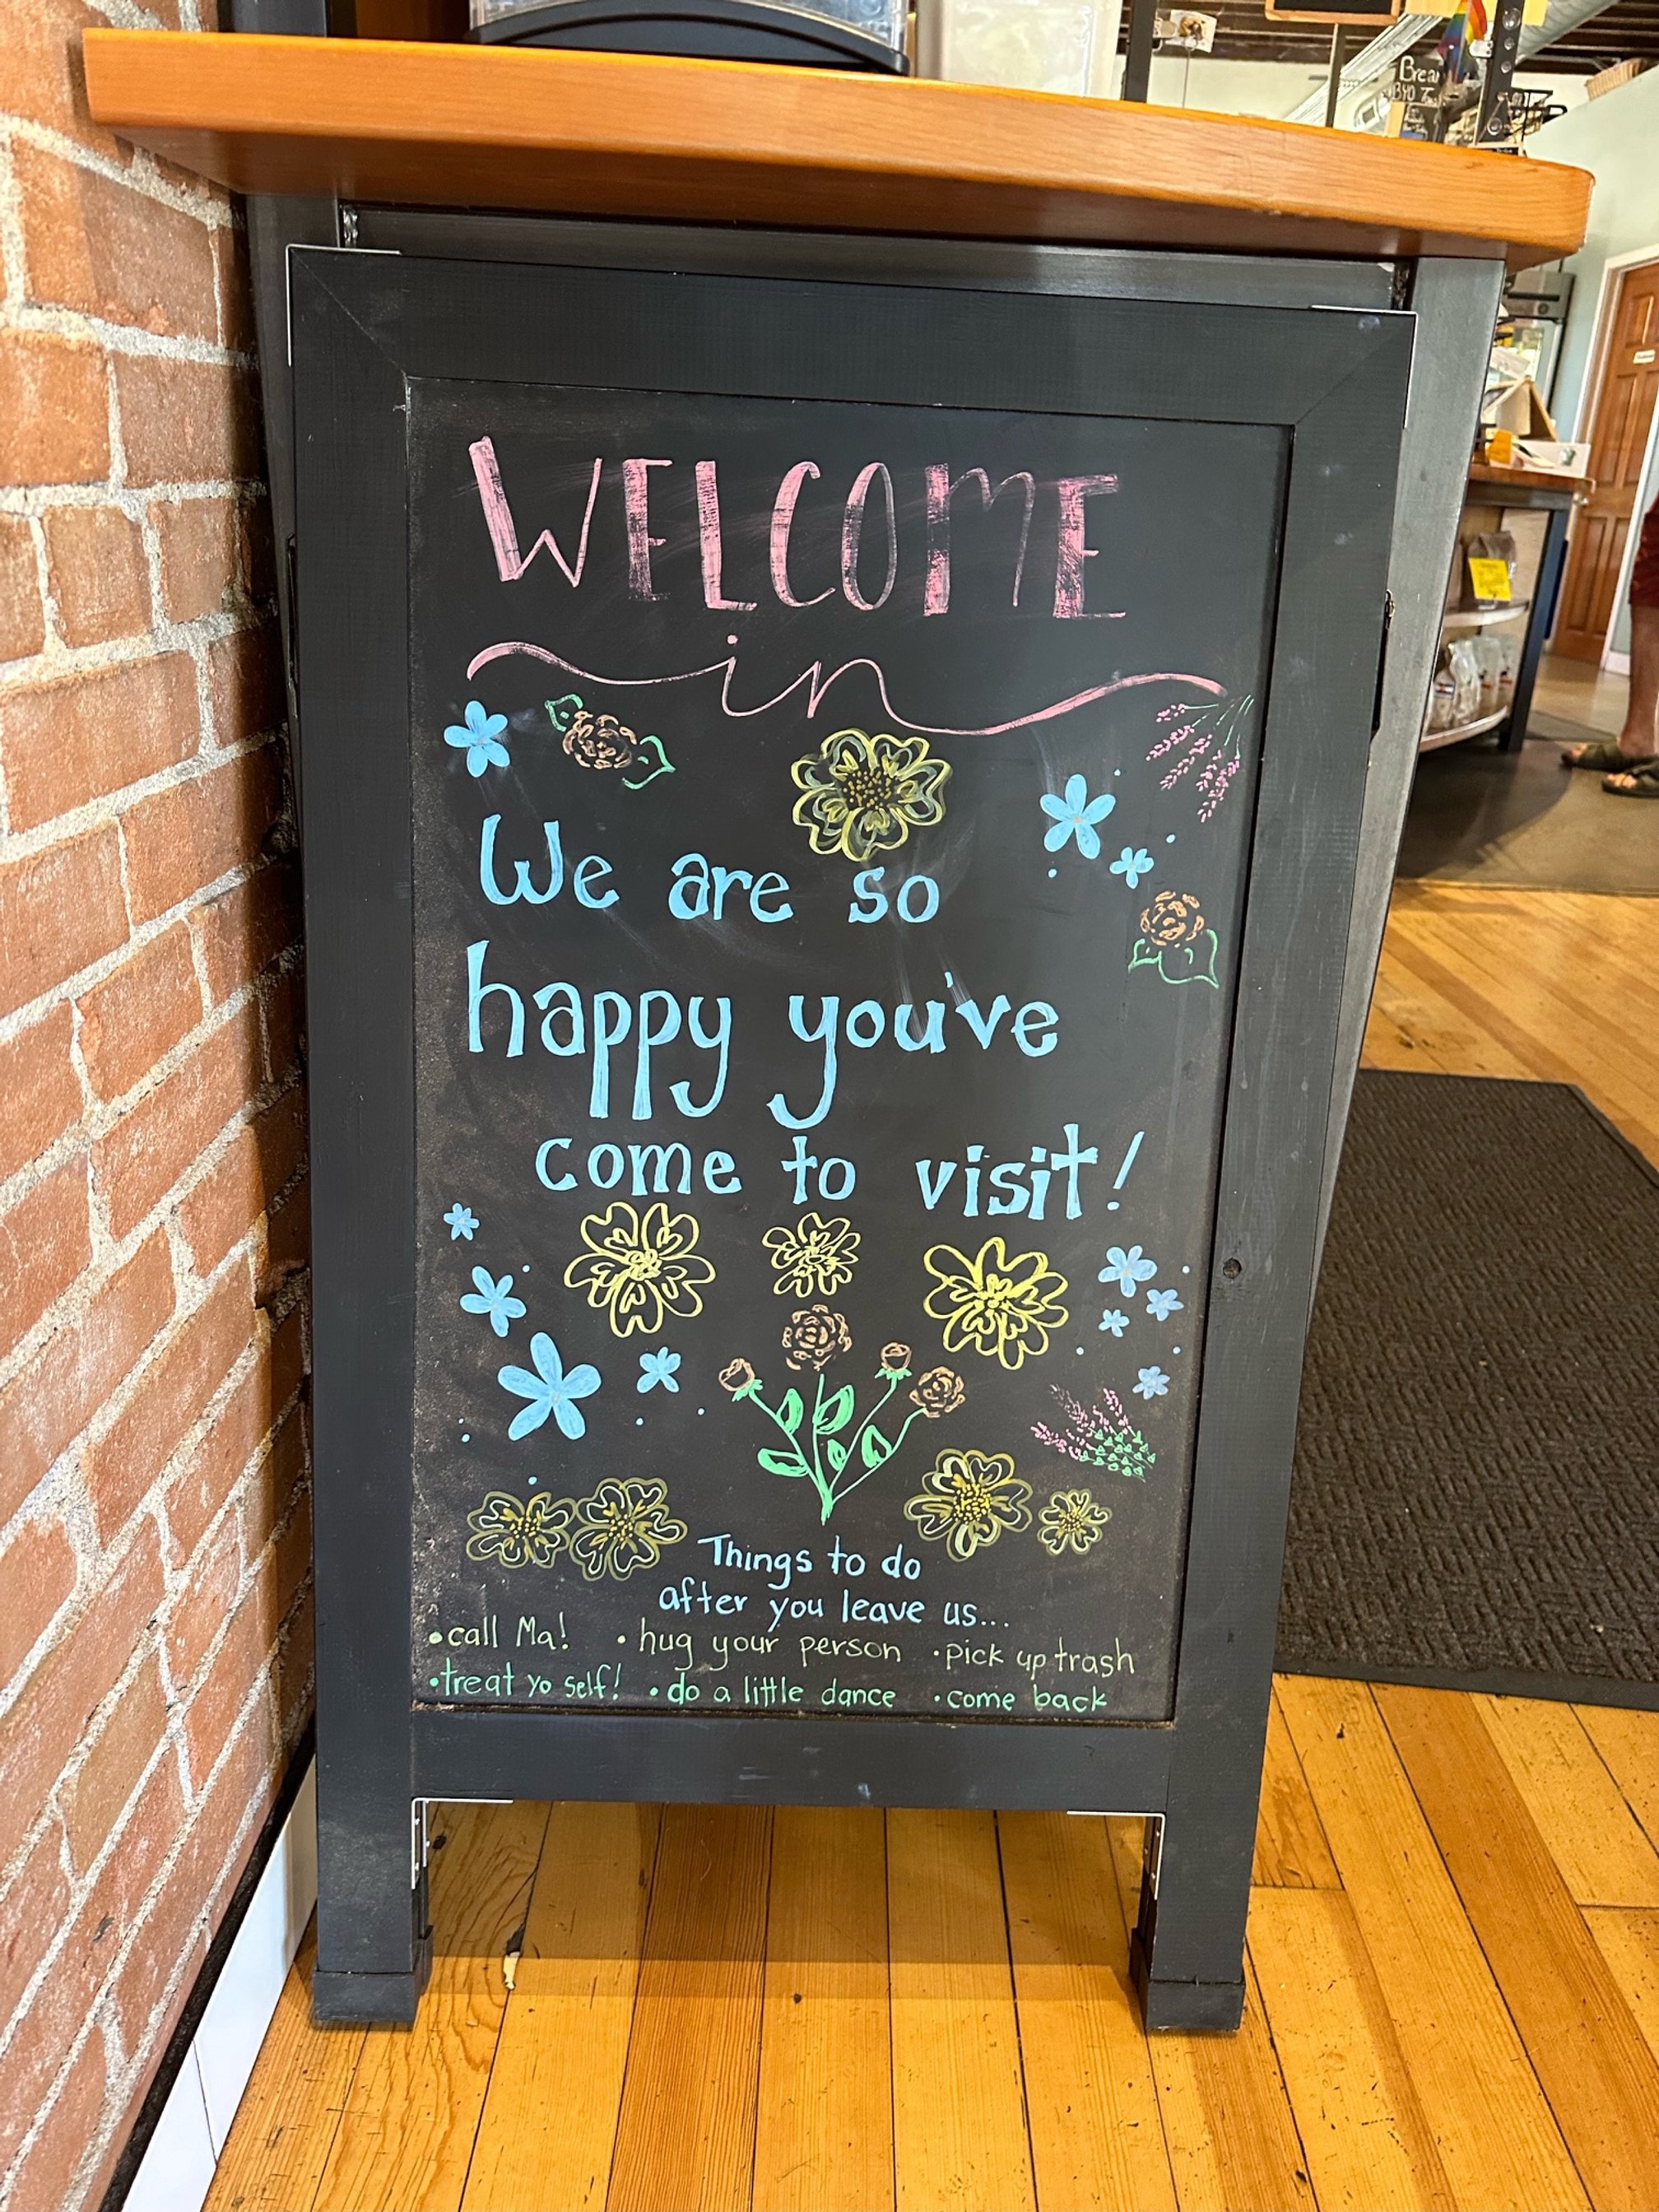 WELCOME
in
We are so
happy you've
come to visit!
Things to do
after you leave us...
•call Ma! •hug your person •pick up trash
•treat yo self! •do a little dance •come back